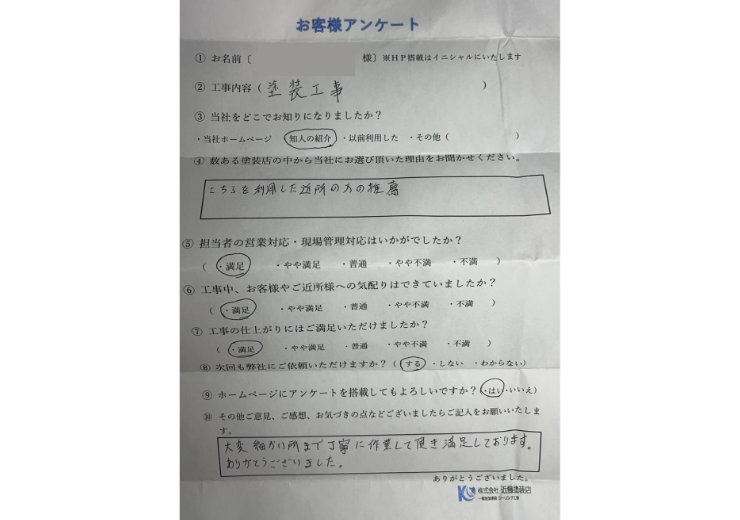 お客様アンケート
① お名前〔 様〕※HP搭載はイニシャルにいたします
② 工事内容( 塗装工事 )
③ 当社をどこでお知りになりましたか？
・当社ホームページ 知人の紹介 ・以前利用した ・その他( )
④ 数ある塗装店の中から当社にお選び頂いた理由をお聞かせください。
こちらを利用した近所の方の推薦
⑤ 担当者の営業対応・現場管理対応はいかがでしたか？
( ・満足 ・やや満足 ・普通 ・やや不満 ・不満 )
⑥ 工事中、お客様やご近所様への気配りはできていましたか？
( ・満足 ・やや満足 ・普通 ・やや不満 ・不満 )
⑦ 工事の仕上がりにはご満足いただけましたか？
( ・満足 ・やや満足 ・普通 ・やや不満 ・不満 )
⑧ 次回も弊社にご依頼いただけますか？ ( する ・しない ・わからない)
⑨ ホームページにアンケートを搭載してもよろしいですか？ (・はい ・いいえ)
⑩ その他ご意見、ご感想、お気づきの点などございましたらご記入をお願いいたしま
す。
大変細かい所まで丁寧に作業して頂き満足しております。
ありがとうございました。
ありがとうございました。
株式会社 近藤塗装店